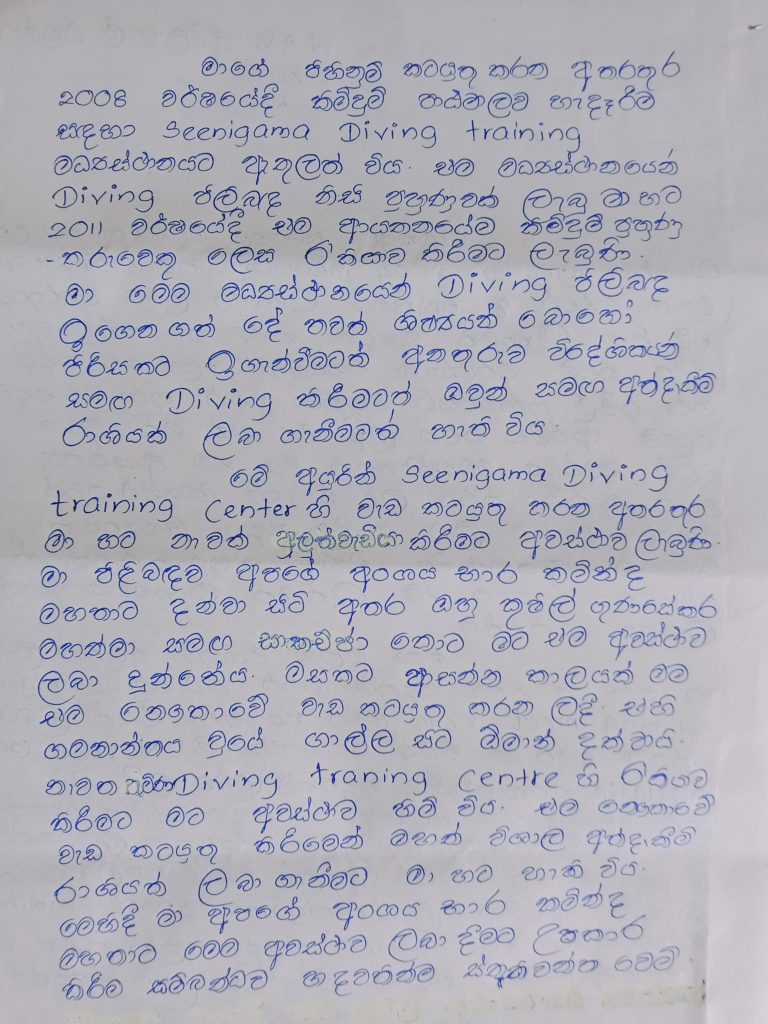 මාගේ පිහිනුම් කටයුතු කරන අතරතුර
2008 වර්ෂයේදී කිමිදුම් පාඨමාලව හැදෑරීම
සඳහා Seenigama Diving training
මධ්‍යස්ථානයට ඇතුලත් විය. එම මධ්‍යස්ථානයෙන්
Diving පිලිබඳ නිසි පුහුණුවක් ලැබූ මා හට
2011 වර්ෂයේදී එම ආයතනයේම කිමිදුම් පුහුණු
-කරුවෙකු ලෙස රැකියාව කිරීමට ලැබුණි.
මා මෙම මධ්‍යස්ථානයෙන් Diving පිලිබඳ
ඉගෙන ගත් දේ තවත් ශිෂ්‍යයන් බොහෝ
පිරිසකට ඉගැන්වීමටත් අනතුරුව විදේශිකයන්
සමඟ Diving කිරීමටත් ඔවුන් සමඟ අත්දැකීම්
රාශියක් ලබා ගැනීමටත් හැකි විය.
මේ අයුරින් Seenigama Diving
training Center හි වැඩ කටයුතු කරන අතරතුර
මා හට නැවත් අලුත්වැඩියා කිරීමට අවස්ථාව ලැබුණි.
මා පිළිබඳව අපගේ අංශය භාර කමින්ද
මහතාට දන්වා සිටි අතර ඔහු කුෂිල් ගුණසේකර
මහත්මා සමඟ සාකච්ඡා කොට මට එම අවස්ථාව
ලබා දුන්නේය. මසකට ආසන්න කාලයක් මම
එම නෞකාවේ වැඩ කටයුතු කරන ලදී. එහි
ගමනාන්තය වුයේ ගාල්ල සිට ඕමාන් දක්වායි.
නැවත Diving traning Centre හි රැකියාව
කිරීමට මට අවස්ථාව හිමි විය. එම නෞකාවේ
වැඩ කටයුතු කිරීමෙන් මහත් විශාල අත්දැකීම්
රාශියක් ලබා ගැනීමට මා හට හැකි විය.
මෙහිදී මා අපගේ අංශය භාර කමින්ද
මහතාට මෙම අවස්ථාව ලබා දීමට උපකාර
කිරීම සම්බන්ධව හදවතින්ම ස්තූතිවන්ත වෙමි